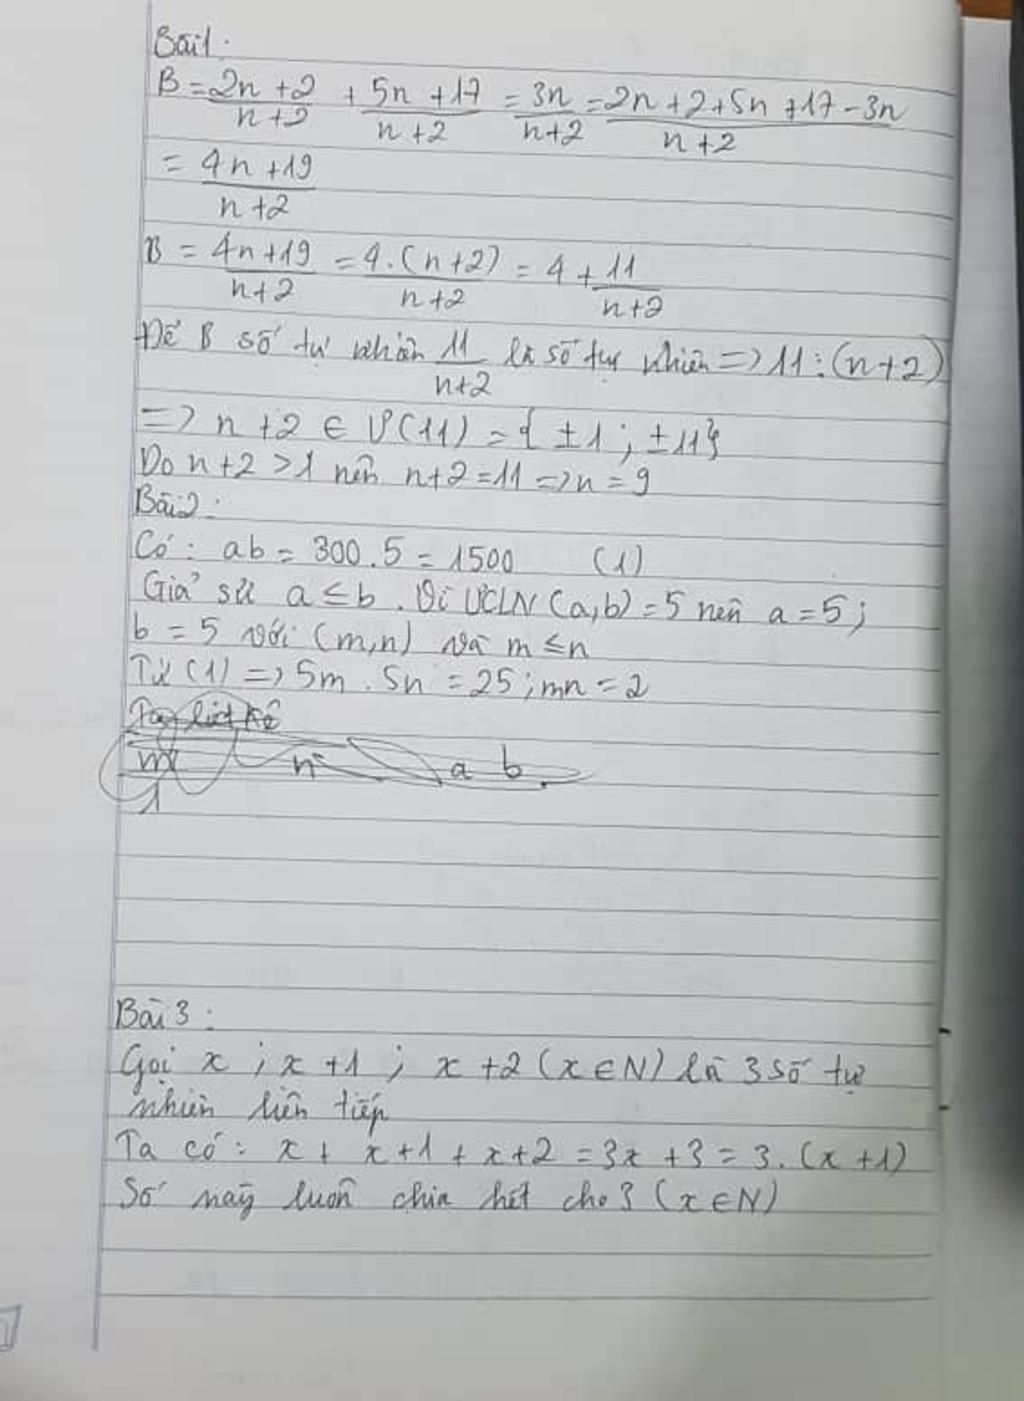 Bài 1:
B = 2n+2/n+2 + 5n+17/n+2 = 3n/n+2 = 2n+2+5n+17-3n/n+2
= 4n+19/n+2
B = 4n+19/n+2 = 4.(n+2)/n+2 = 4 + 11/n+2
Để B số tự nhiên 11/n+2 là số tự nhiên => 11 ⋮ (n+2)
=> n+2 ∈ Ư(11) = { ±1 ; ±11}
Do n+2 >1 nên n+2 = 11 => n = 9
Bài 2:
Có: ab = 300.5 = 1500 (1)
Giả sử a ≤ b. Vì ƯCLN (a,b) = 5 nên a = 5;
b = 5 với (m,n) và m ≤ n
Từ (1) => 5m . 5n = 25 ; mn = 2
Ta liệt kê
m n a b
1
Bài 3:
Gọi x ; x +1 ; x +2 (x ∈ N) là 3 số tự
nhiên liên tiếp
Ta có: x + x+1 + x+2 = 3x +3 = 3.(x +1)
Số này luôn chia hết cho 3 (x ∈ N)